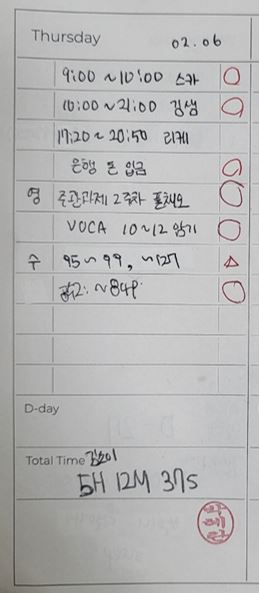 Thursday 02.06
9:00 ~ 10:00 스카 ○
10:00 ~ 21:00 김샘 ○
17:20 ~ 20:50 리케
은행 돈 입금 ○
영 주관과제 2주차 풀채오 ○
VOCA 10~12 암기 ○
수 95~99, ~127 △
~84P. ○
D-day
Total Time
5H 12M 37S